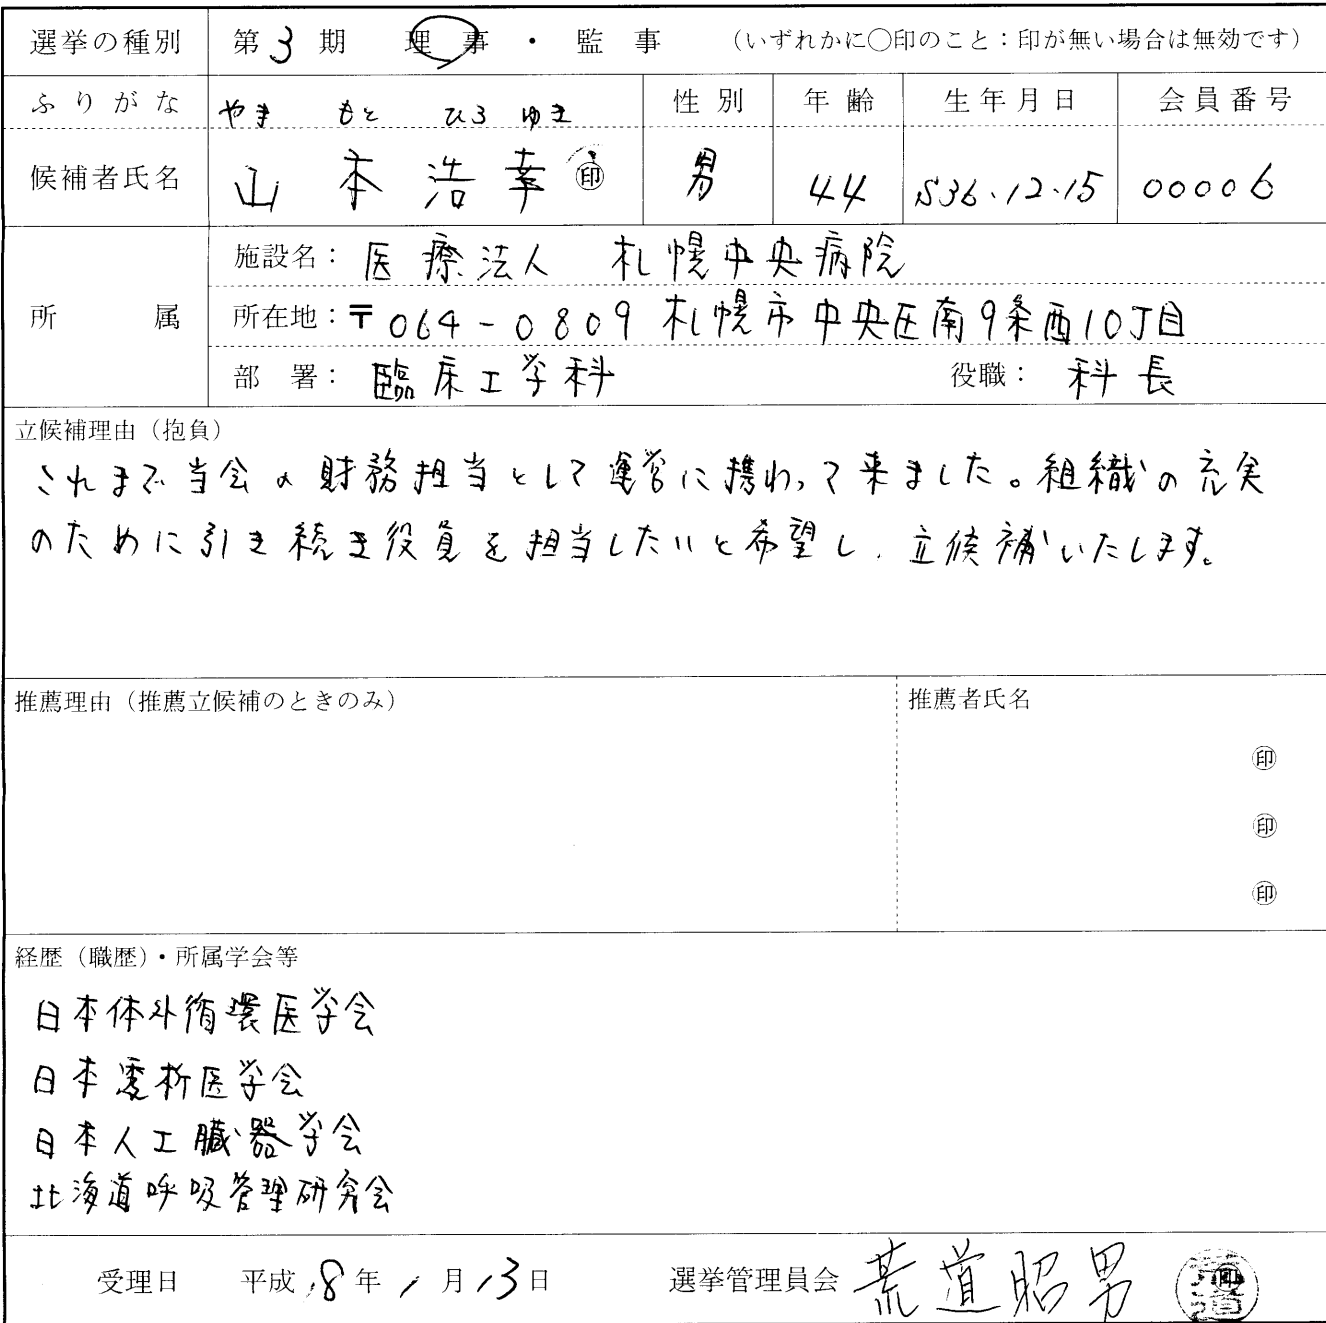 選挙の種別 第3期 理事・監事 （いずれかに○印のこと：印が無い場合は無効です）
ふりがな やま もと ひろ ゆき 性別 年齢 生年月日 会員番号
候補者氏名 山本浩幸 ㊞ 男 44 S36.12.15 00006
所属
施設名：医療法人 札幌中央病院
所在地：〒064-0809 札幌市中央区南9条西10丁目
部署：臨床工学科 役職：科長
立候補理由（抱負）
これまで当会の財務担当として運営に携わって来ました。組織の充実
のために引き続き役員を担当したいと希望し、立候補いたします。
推薦理由（推薦立候補のときのみ） 推薦者氏名
㊞
㊞
㊞
経歴（職歴）・所属学会等
日本体外循環医学会
日本透析医学会
日本人工臓器学会
北海道呼吸管理研究会
受理日 平成18年1月13日 選挙管理員会 荒道昭男 ㊞